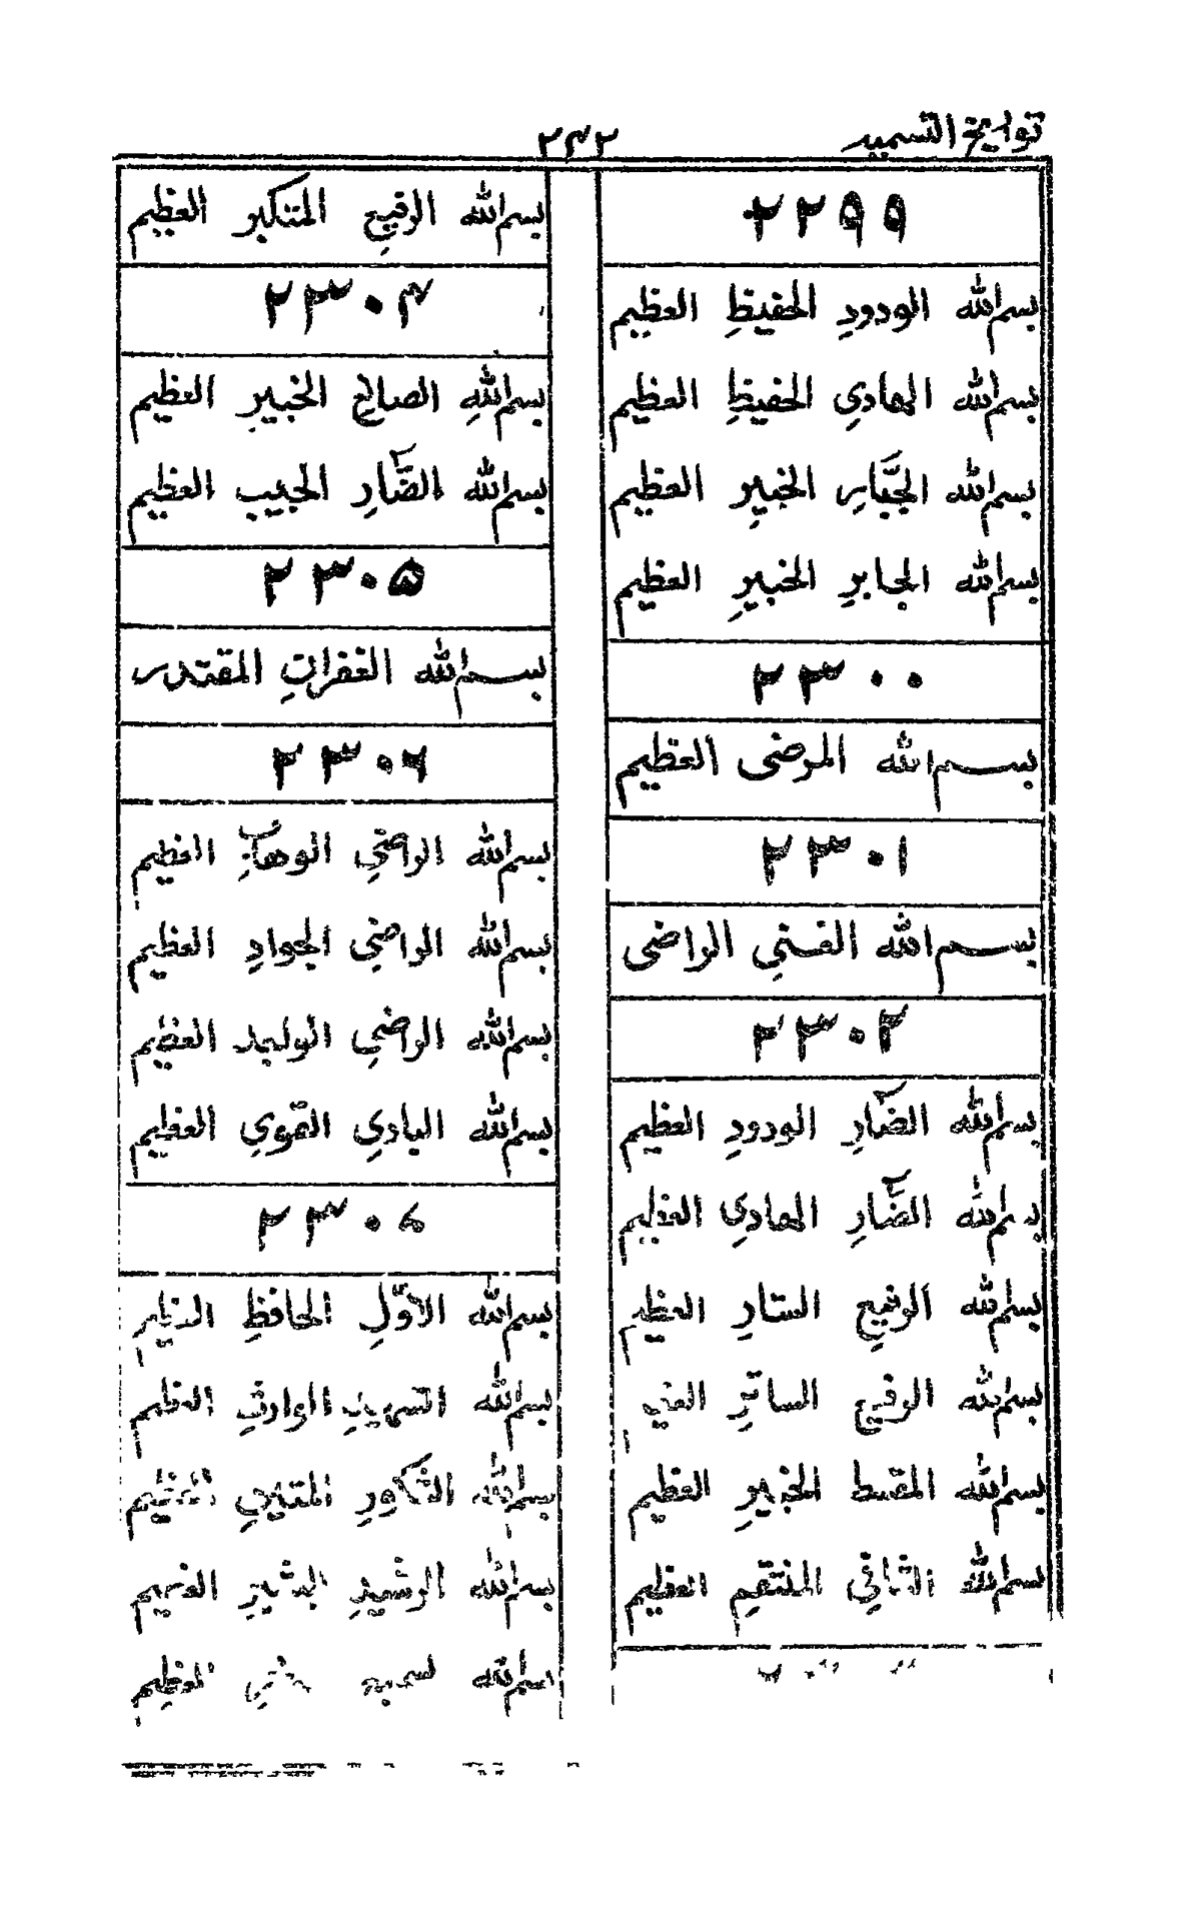 تواریخ التسمیہ
۲۴۲
۲۲۹۹
بسم الله الودودِ الحفیظِ العظیم
بسم الله الهادیِ الحفیظِ العظیم
بسم الله الجبَّارِ الخبیرِ العظیم
بسم الله الجابرِ الخبیرِ العظیم
۲۳۰۰
بسم الله المرضی العظیم
۲۳۰۱
بسم الله الغنیِ الراضی
۲۳۰۲
بسم الله الضَّارِ الودودِ العظیم
بسم الله الضَّارِ الهادیِ العظیم
بسم الله الرفیعِ الستارِ العظیم
بسم الله الرفیعِ الساترِ
بسم الله المقسط الخبیرِ العظیم
بسم الله الشافیِ المنتقمِ العظیم
بسم الله الرفیعِ المتکبر العظیم
۲۳۰۴
بسم اللهِ الصالحِ الخبیرِ العظیم
بسم الله الضَّارِ الحبیب العظیم
۲۳۰۵
بسم الله الغفراتِ المقتدر
۲۳۰۶
بسم الله الراضیِ الوهابِ العظیم
بسم الله الراضیِ الجوادِ العظیم
بسم الله الراضیِ الولید العظیم
بسم الله البادیِ القویِ العظیم
۲۳۰۷
بسم الله الأوّلِ الحافظِ العظیم
بسم الله الوارثِ العظیم
بسم الله الشکورِ العظیم
بسم الله الرشیدِ البشیرِ العظیم
بسم الله العظیم